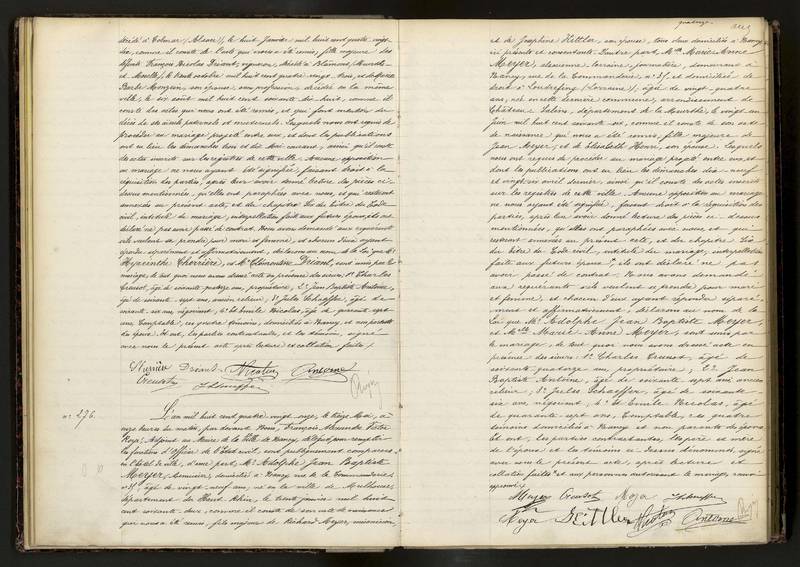 décédé à Colmar (Alsace), le huit Janvier mil huit cent quatre vingt
six, comme il conste de l'acte qui nous a été remis, fille majeure des
défunts François Nicolas Driant, vigneron, décédé à Blamont (Meurthe
et Moselle), le trente octobre mil huit cent quatre vingt trois, et de
Barbe son épouse, sans profession, décédée en la même
ville, le six août mil huit cent soixante dix huit, comme il
conste des actes qui nous ont été remis, et qui font mention du
décès de ses aïeuls paternels et maternels. Lesquels nous ont requis de
procéder au mariage projeté entre eux, et dont les publications
ont eu lieu les dimanches trois et dix Mai courant, ainsi qu'il conste
des actes inscrits sur les registres de cette ville. Aucune opposition
au mariage ne nous ayant été signifiée, faisant droit à la
réquisition des parties, après leur avoir donné lecture des pièces ci-
dessus mentionnées, qu'elles ont paraphées avec nous, et qui resteront
annexées au présent acte, et du chapitre Six du titre du Code
civil, intitulé du mariage, interpellation faite aux futurs époux, ils ont
déclaré ne pas avoir passé de contrat. Nous avons demandé aux requérants
s'ils veulent se prendre pour mari et femme, et chacun d'eux ayant
répondu séparément et affirmativement, déclarons au nom de la Loi que Mr
Hyacinthe et Mlle Clémentine Driant, sont unis par le
mariage, de tout quoi nous avons dressé acte en présence des sieurs, 1° Charles
Creusot, âgé de soixante quatorze ans, propriétaire, 2° Jean Baptiste Antoine,
âgé de soixante sept ans, ancien relieur, 3° Jules Schaeffer, âgé de
soixante six ans, négociant, 4° et Emile Nicolas, âgé de quarante sept
ans, Comptable, ces quatre témoins, domiciliés à Nancy, et non parents
des époux. Et ont, les parties contractantes, et les témoins, signé
avec nous le présent acte après lecture et collation faites.
Driant Nicolas Antoine
Creusot Schaeffer
n° 276.
L'an mil huit cent quatre vingt onze, le treize Mai, à
onze heures du matin, par devant Nous, François Alexandre Victor
Noya, Adjoint au Maire de la Ville de Nancy, délégué pour remplir
les fonctions d'Officier de l'état civil, sont publiquement comparus
en l'hôtel de ville, d'une part, Mr Adolphe Jean Baptiste
Meyer, domicilié à Nancy rue de la Commanderie
n° 31, âgé de vingt neuf ans, né en la ville de Mulhouse,
département du Haut Rhin, le trente janvier mil huit
cent soixante deux, comme il conste de son acte de naissance
qui nous a été remis, fils majeur de Richard Meyer, mécanicien
et de Joséphine Kittler, son épouse, tous deux domiciliés à Nancy
ici présents et consentants. D'autre part, Mlle Marie Anne
Meyer, alsacienne lorraine, journalière, demeurant à
Nancy, rue de la Commanderie n° 31 et domiciliée de
droit à Loudrefing (Lorraine), âgée de vingt quatre
ans, née en cette dernière commune, arrondissement de
Château Salins, département de la Meurthe, le vingt un
Juin mil huit cent soixante six, comme il conste de son acte
de naissance qui nous a été remis, fille majeure de
Jean Meyer, et de Elisabeth Henri, son épouse. Lesquels
nous ont requis de procéder au mariage projeté entre eux, et
dont les publications ont eu lieu les dimanches dix-neuf
et vingt six avril dernier, ainsi qu'il conste des actes inscrits
sur les registres de cette ville. Aucune opposition au mariage
ne nous ayant été signifiée, faisant droit à la réquisition des
parties, après leur avoir donné lecture des pièces ci-dessus
mentionnées, qu'elles ont paraphées avec nous et qui
resteront annexées au présent acte, et du chapitre Six
du titre du Code civil, intitulé du mariage, interpellation
faite aux futurs époux, ils ont déclaré ne pas
avoir passé de contrat. Nous avons demandé
aux requérants s'ils veulent se prendre pour mari
et femme, et chacun d'eux ayant répondu séparé-
ment et affirmativement, déclarons au nom de la
Loi que Mr Adolphe Jean Baptiste Meyer,
et Mlle Marie Anne Meyer, sont unis par
le mariage, de tout quoi nous avons dressé acte en
présence des sieurs 1° Charles Creusot, âgé de
soixante quatorze ans, propriétaire, 2° Jean
Baptiste Antoine, âgé de soixante sept ans ancien
relieur, 3° Jules Schaeffer, âgé de soixante-
six ans, négociant, 4° et Emile Nicolas, âgé
de quarante sept ans, Comptable, ces quatre
témoins domiciliés à Nancy et non parents des époux.
Et ont, les parties contractantes, les père et mère
de l'époux et les témoins ci-dessus dénommés, signé
avec nous le présent acte, après lecture et
collation faites
Meyer Creusot Noya Schaeffer
Meyer Kittler Nicolas Antoine